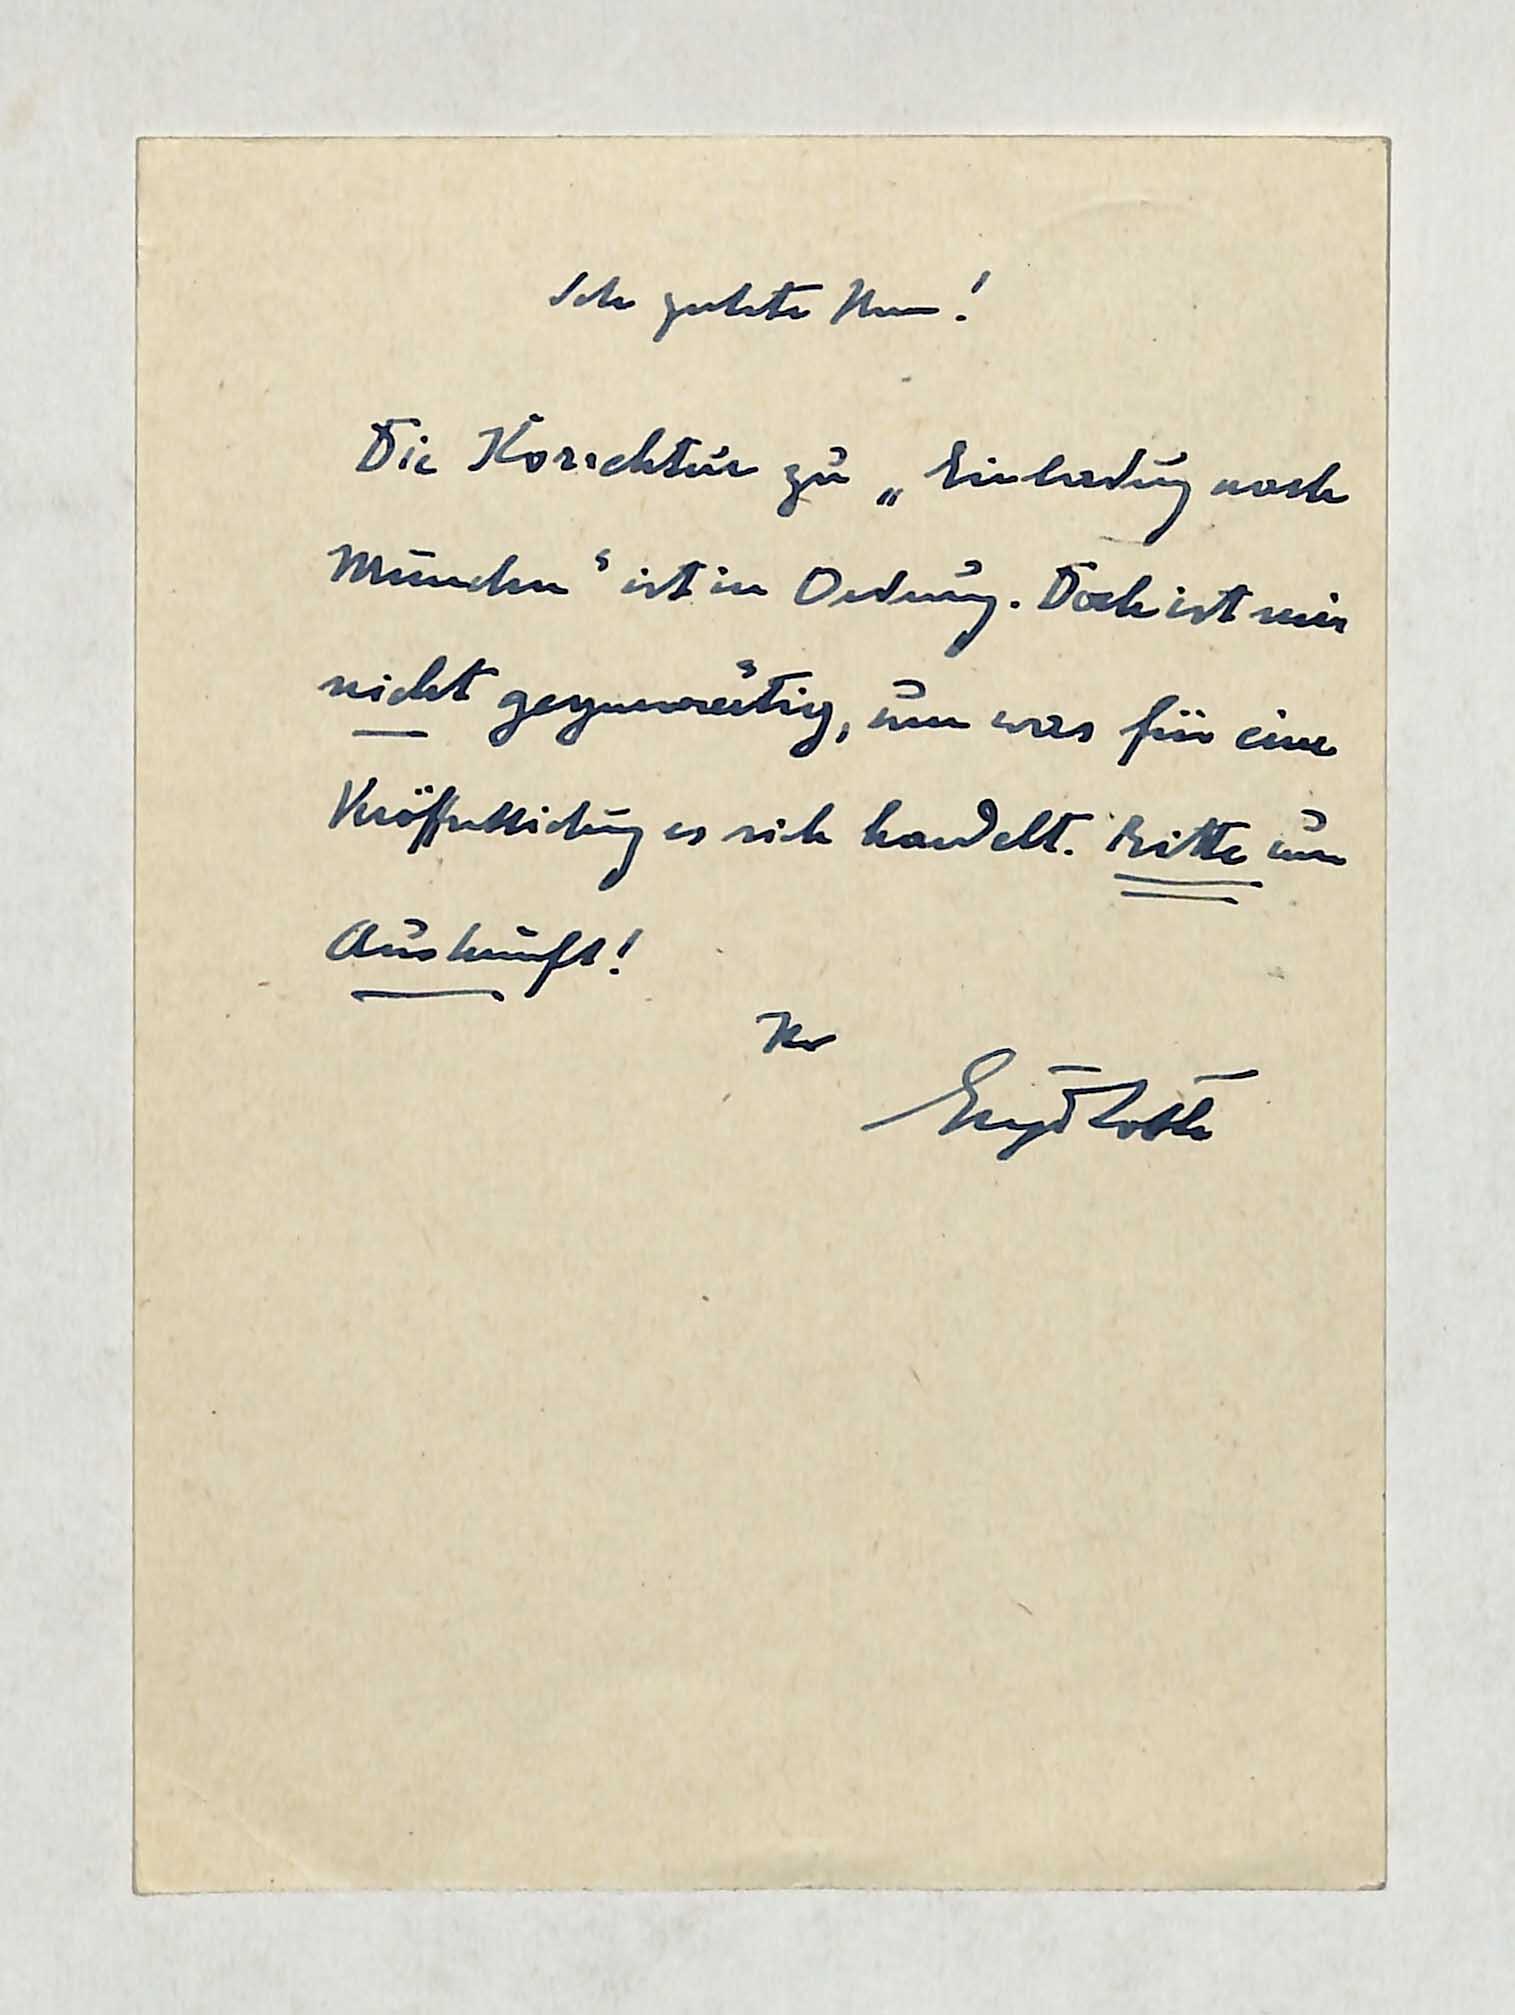 Sehr geehrte Herren!
Die Korrektur zu „Einladung nach
München" ist in Ordnung. Doch ist mir
nicht gegenwärtig, um was für eine
Veröffentlichung es sich handelt. Bitte um
Auskunft!
Ihr
Eugen Roth